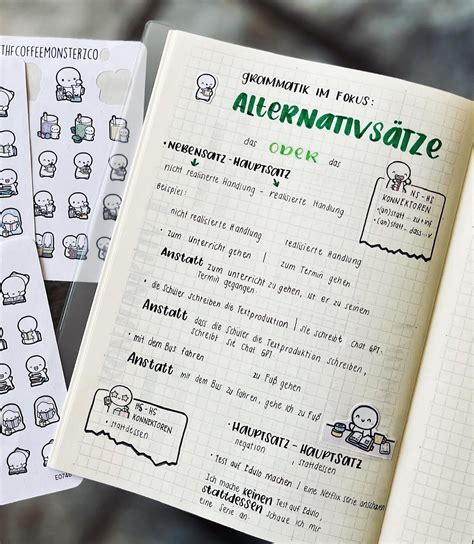 THECOFFEEMONSTERZCO
GRAMMATIK IM FOKUS:
ALTERNATIVSÄTZE
das ODER das
• NEBENSATZ - HAUPTSATZ
nicht realisierte Handlung - realisierte Handlung
Beispiel:
nicht realisierte Handlung realisierte Handlung
• zum Unterricht gehen | zum Termin gehen
Anstatt zum Unterricht zu gehen, ist er zu seinem
Termin gegangen.
• die Schüler schreiben die Textproduktion | sie schreibt Chat GPT.
Anstatt dass die Schüler die Textproduktion schreiben,
schreibt sie Chat GPT.
• mit dem Bus fahren zu Fuß gehen
Anstatt mit dem Bus zu fahren, gehe ich zu Fuß
NS - HS
KONNEKTOREN
• (an)statt... zu + INF
• (an)statt... dass...
HS - HS
KONNEKTOREN
• stattdessen
• HAUPTSATZ - HAUPTSATZ
negation , stattdessen
• Test auf Edulo machen | eine Netflix serie anschauen
Ich mache keinen Test auf Edulo,
stattdessen schaue ich mir
eine Serie an.